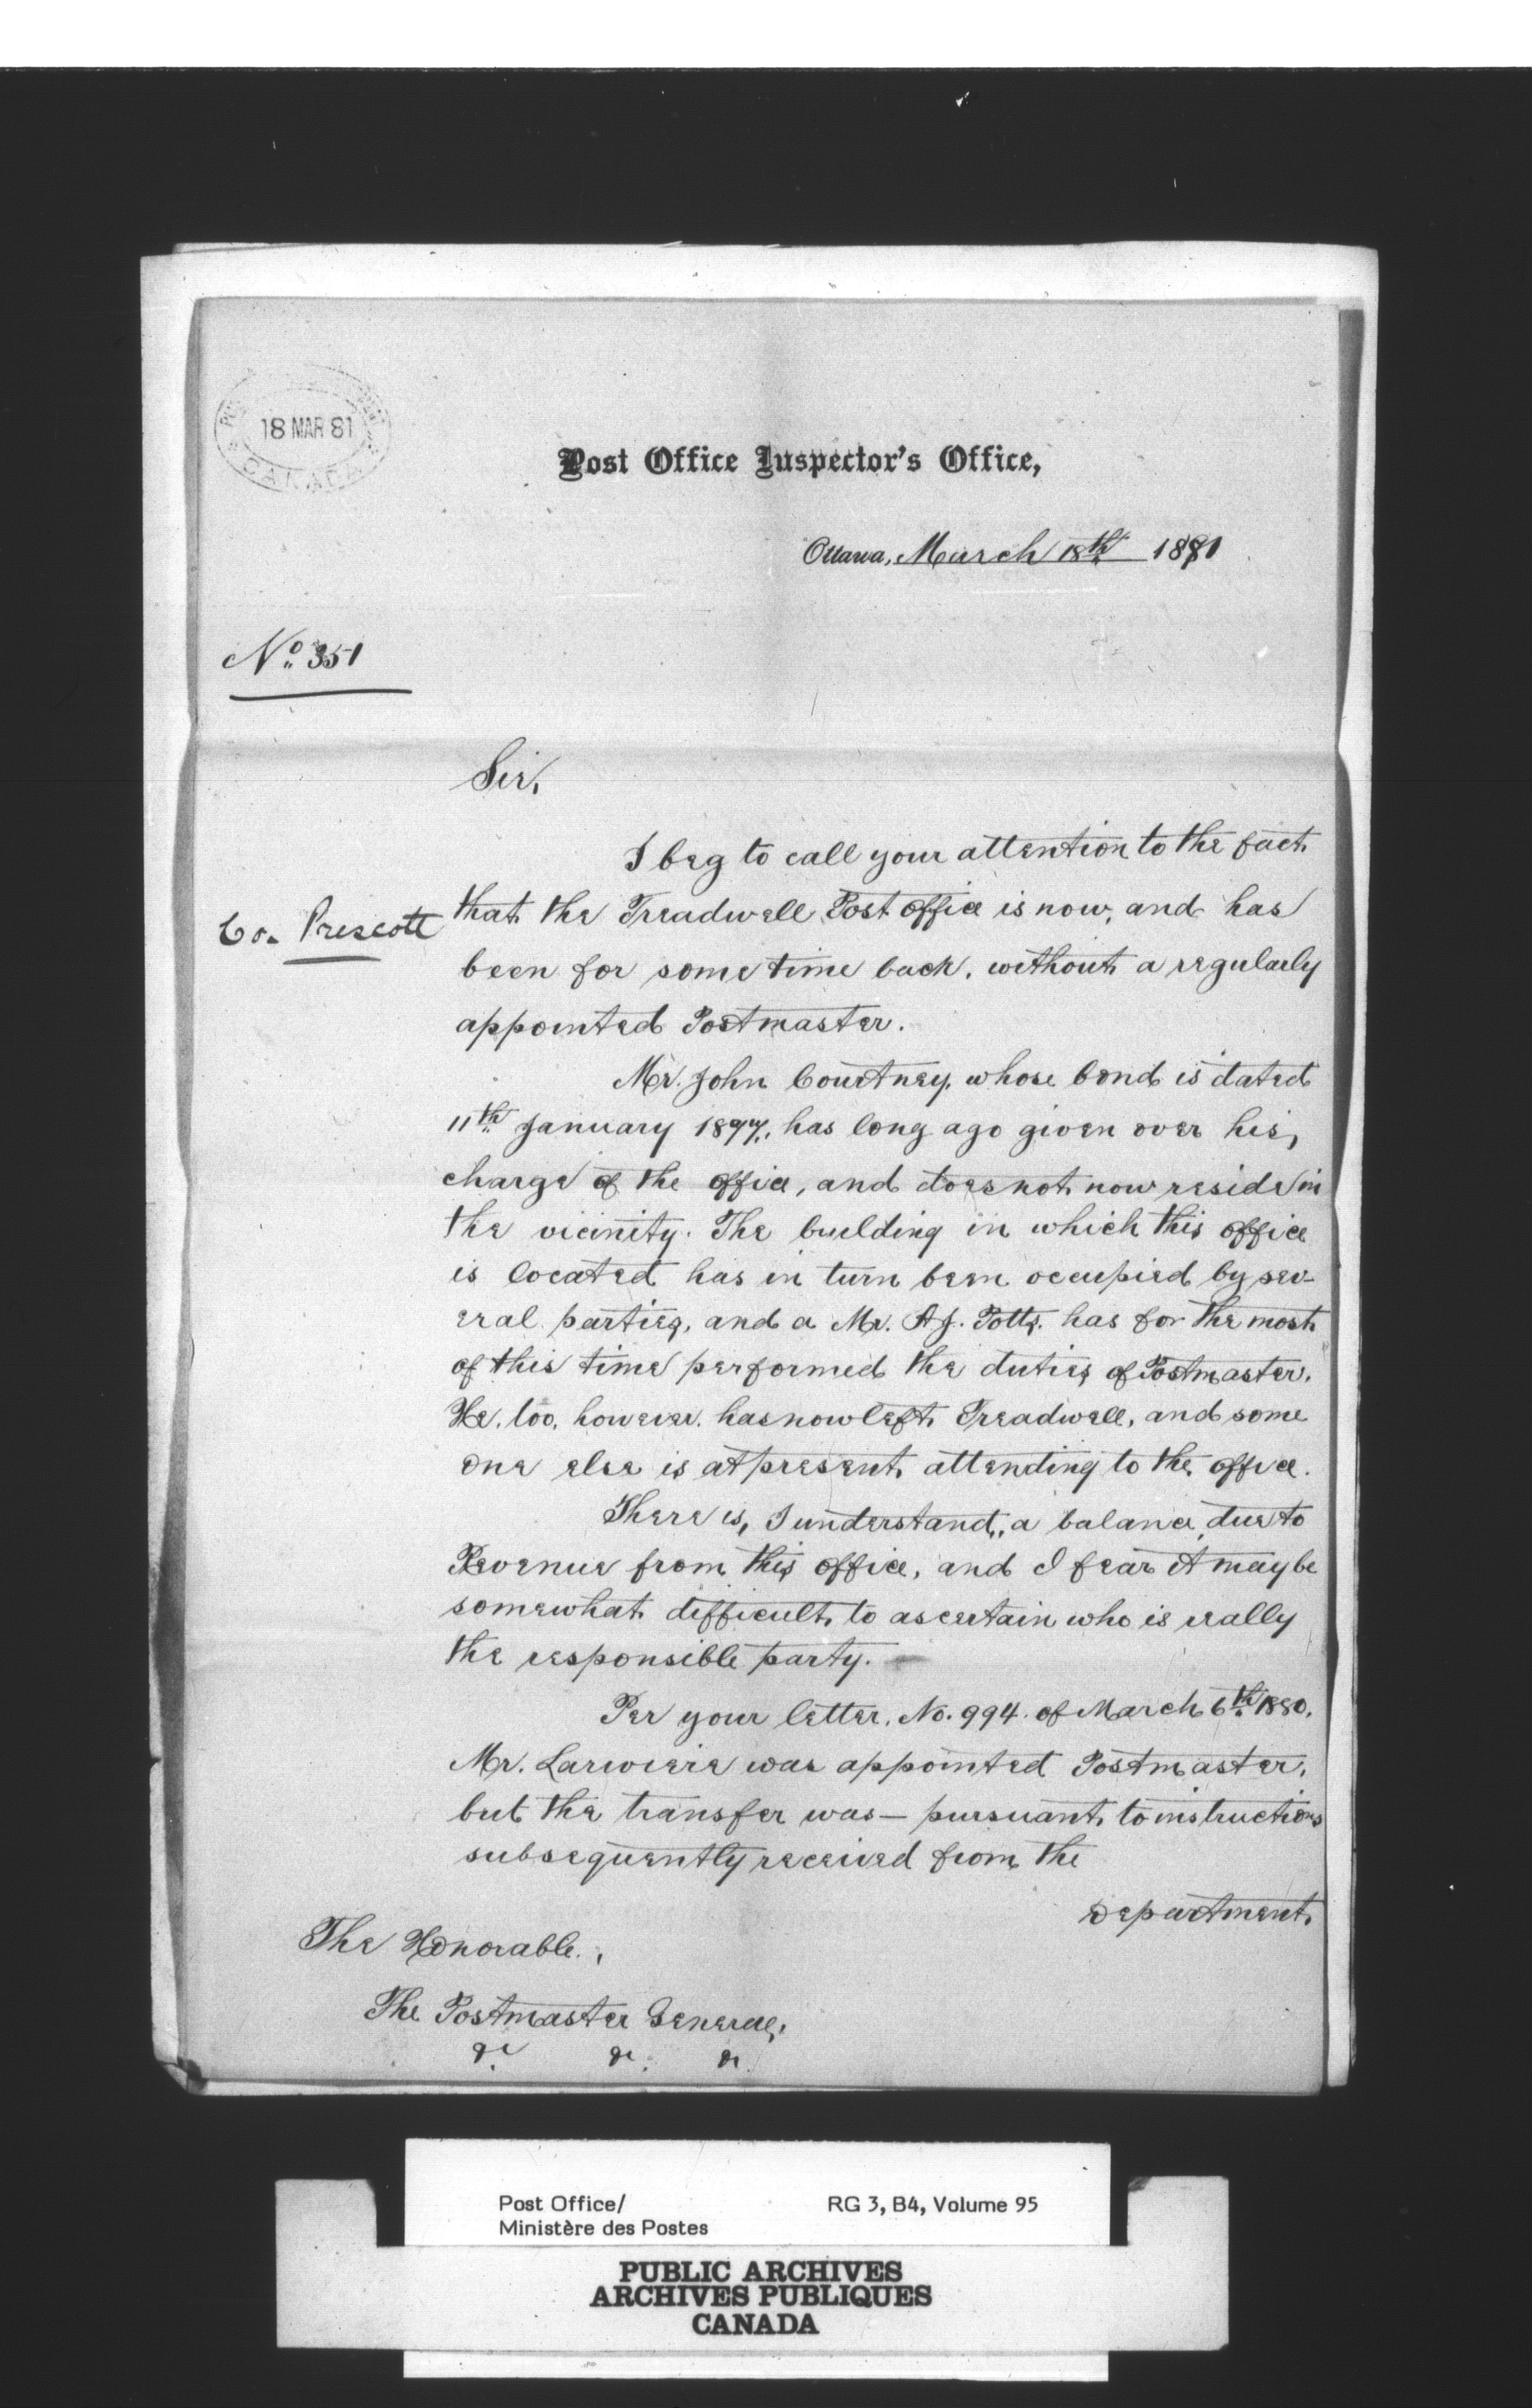 18 MAR 81
CANADA
Post Office Inspector's Office,
Ottawa, March 18th 1881
No. 351
Sir,
I beg to call your attention to the fact
that the Treadwell Post office is now, and has
Co. Prescott
been for some time back, without a regularly
appointed Postmaster.
Mr. John Courtney, whose bond is dated
11th January 1877, has long ago given over his
charge of the office, and does not now reside in
the vicinity. The building in which this office
is located has in turn been occupied by sev-
eral parties, and a Mr. A J. Potts, has for the most
of this time performed the duties of Postmaster.
He, too, however, has now left Treadwell, and some
one else is at present attending to the office.
There is, I understand, a balance due to
Revenue from this office, and I fear it may be
somewhat difficult to ascertain who is really
the responsible party.
Per your letter, No. 994 of March 6th 1880,
Mr. Lariviere was appointed Postmaster,
but the transfer was — pursuant to instructions
subsequently received from the
Department
The Honorable,
The Postmaster General,
&c. &c. &c.
Post Office/
Ministère des Postes
RG 3, B4, Volume 95
PUBLIC ARCHIVES
ARCHIVES PUBLIQUES
CANADA